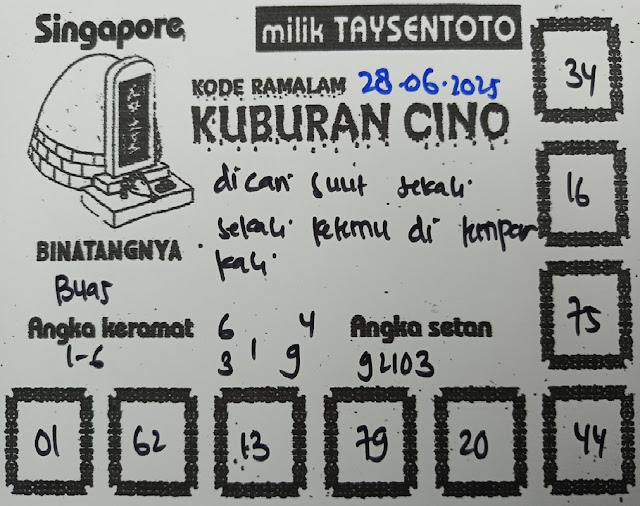 Singapore
milik TAYSENTOTO
KODE RAMALAM 28.06.2025
KUBURAN CINO
34
dicari sulit sekali
sekali ketemu di tempar
kali
16
BINATANGNYA
Buas
75
Angka keramat
1-6
6 4
3 1 9
Angka setan
92103
01 62 13 79 20 44